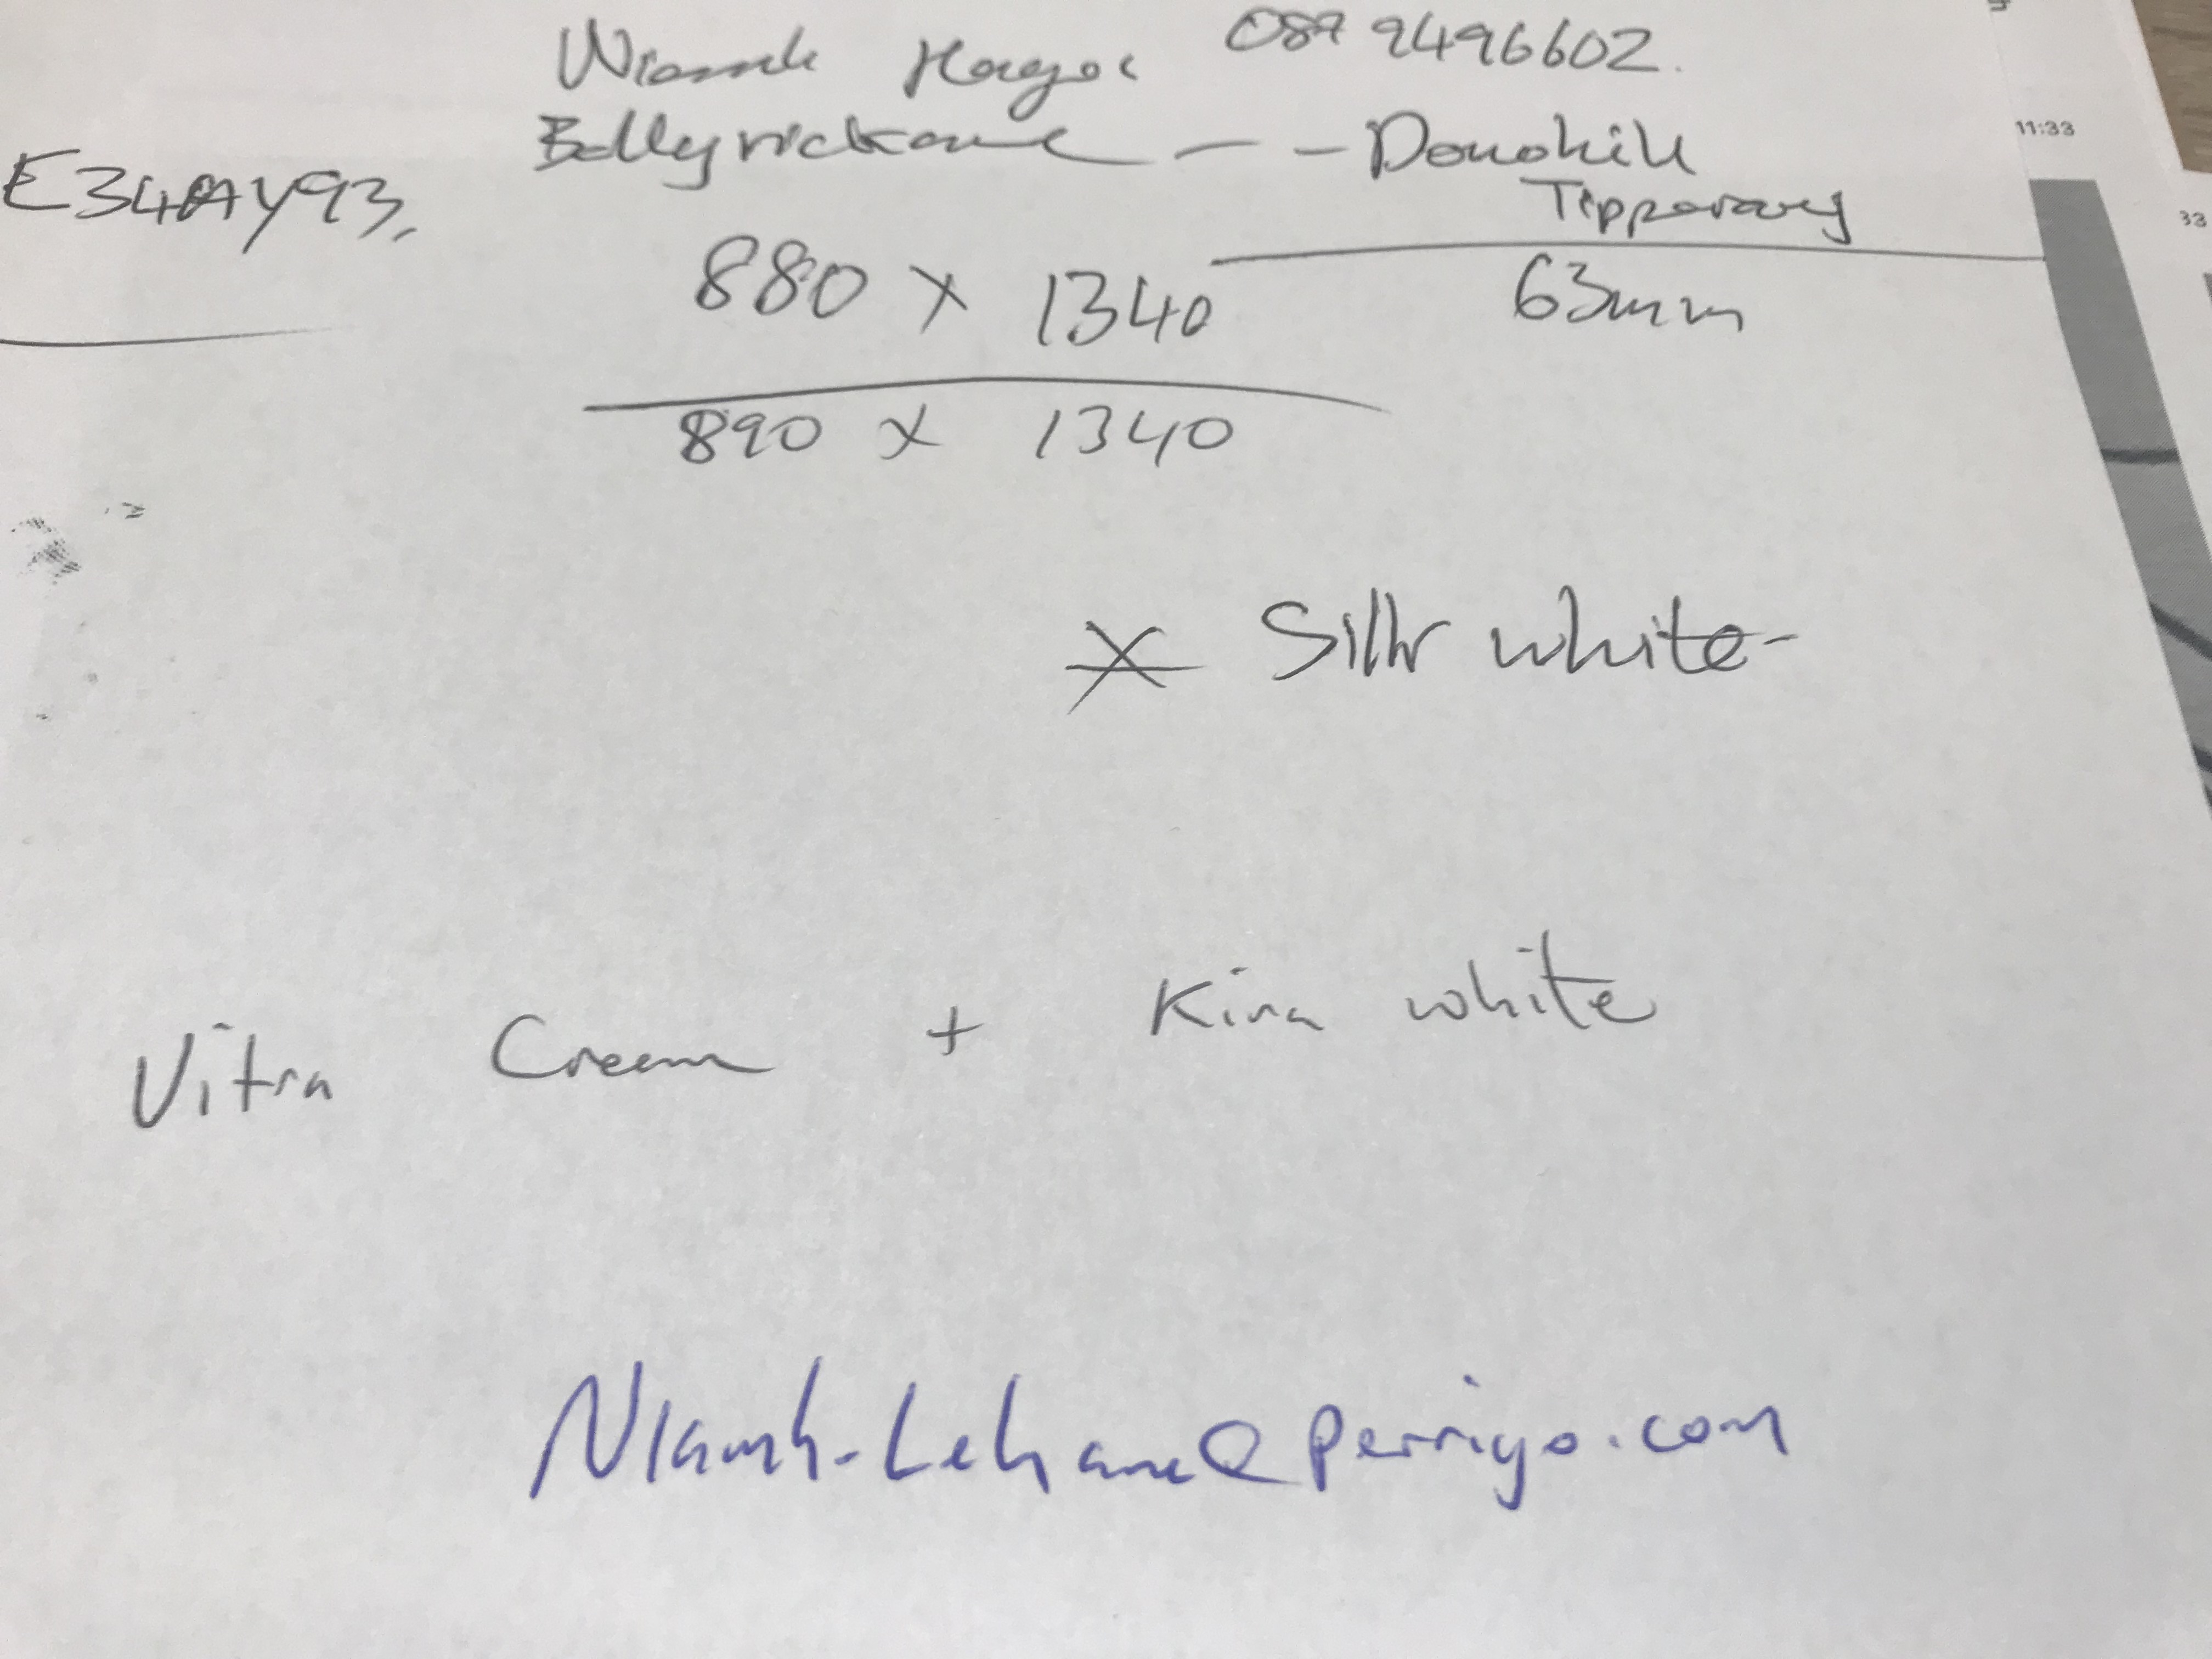 087 9496602.
Donohill
E34AY93,
Tipperary
880 x 1340
63mm
890 x 1340
Silk white
Vitra Cream + Kira white
Niamh.Lehane@perrigo.com
11:33
33